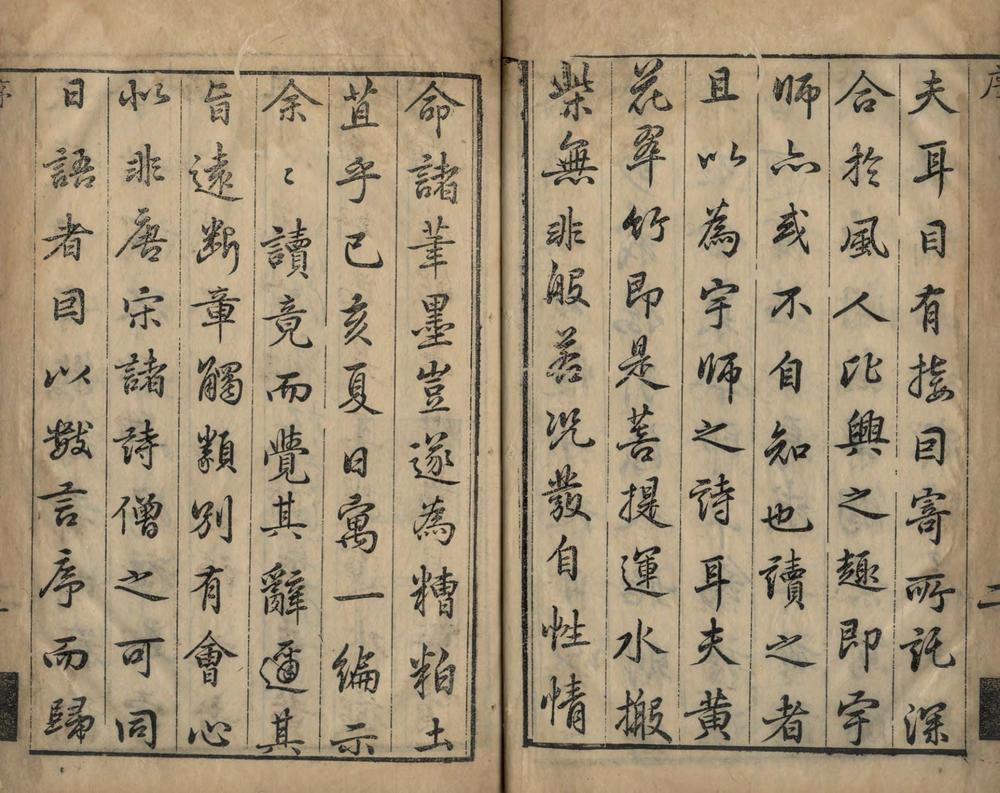 夫耳目有接因寄所託深
合於風人比興之趣即宇
師亦或不自知也讀之者
且以為宇師之詩耳夫黃
花翠竹即是菩提運水搬
柴無非般若況發自性情
命諸筆墨豈遂為糟粕土
苴乎己亥夏日寓一編示
余〻讀竟而覺其辭邇其
旨遠斷章觸類別有會心
似非唐宋諸詩僧之可同
日語者因以數言序而歸
序
二
序